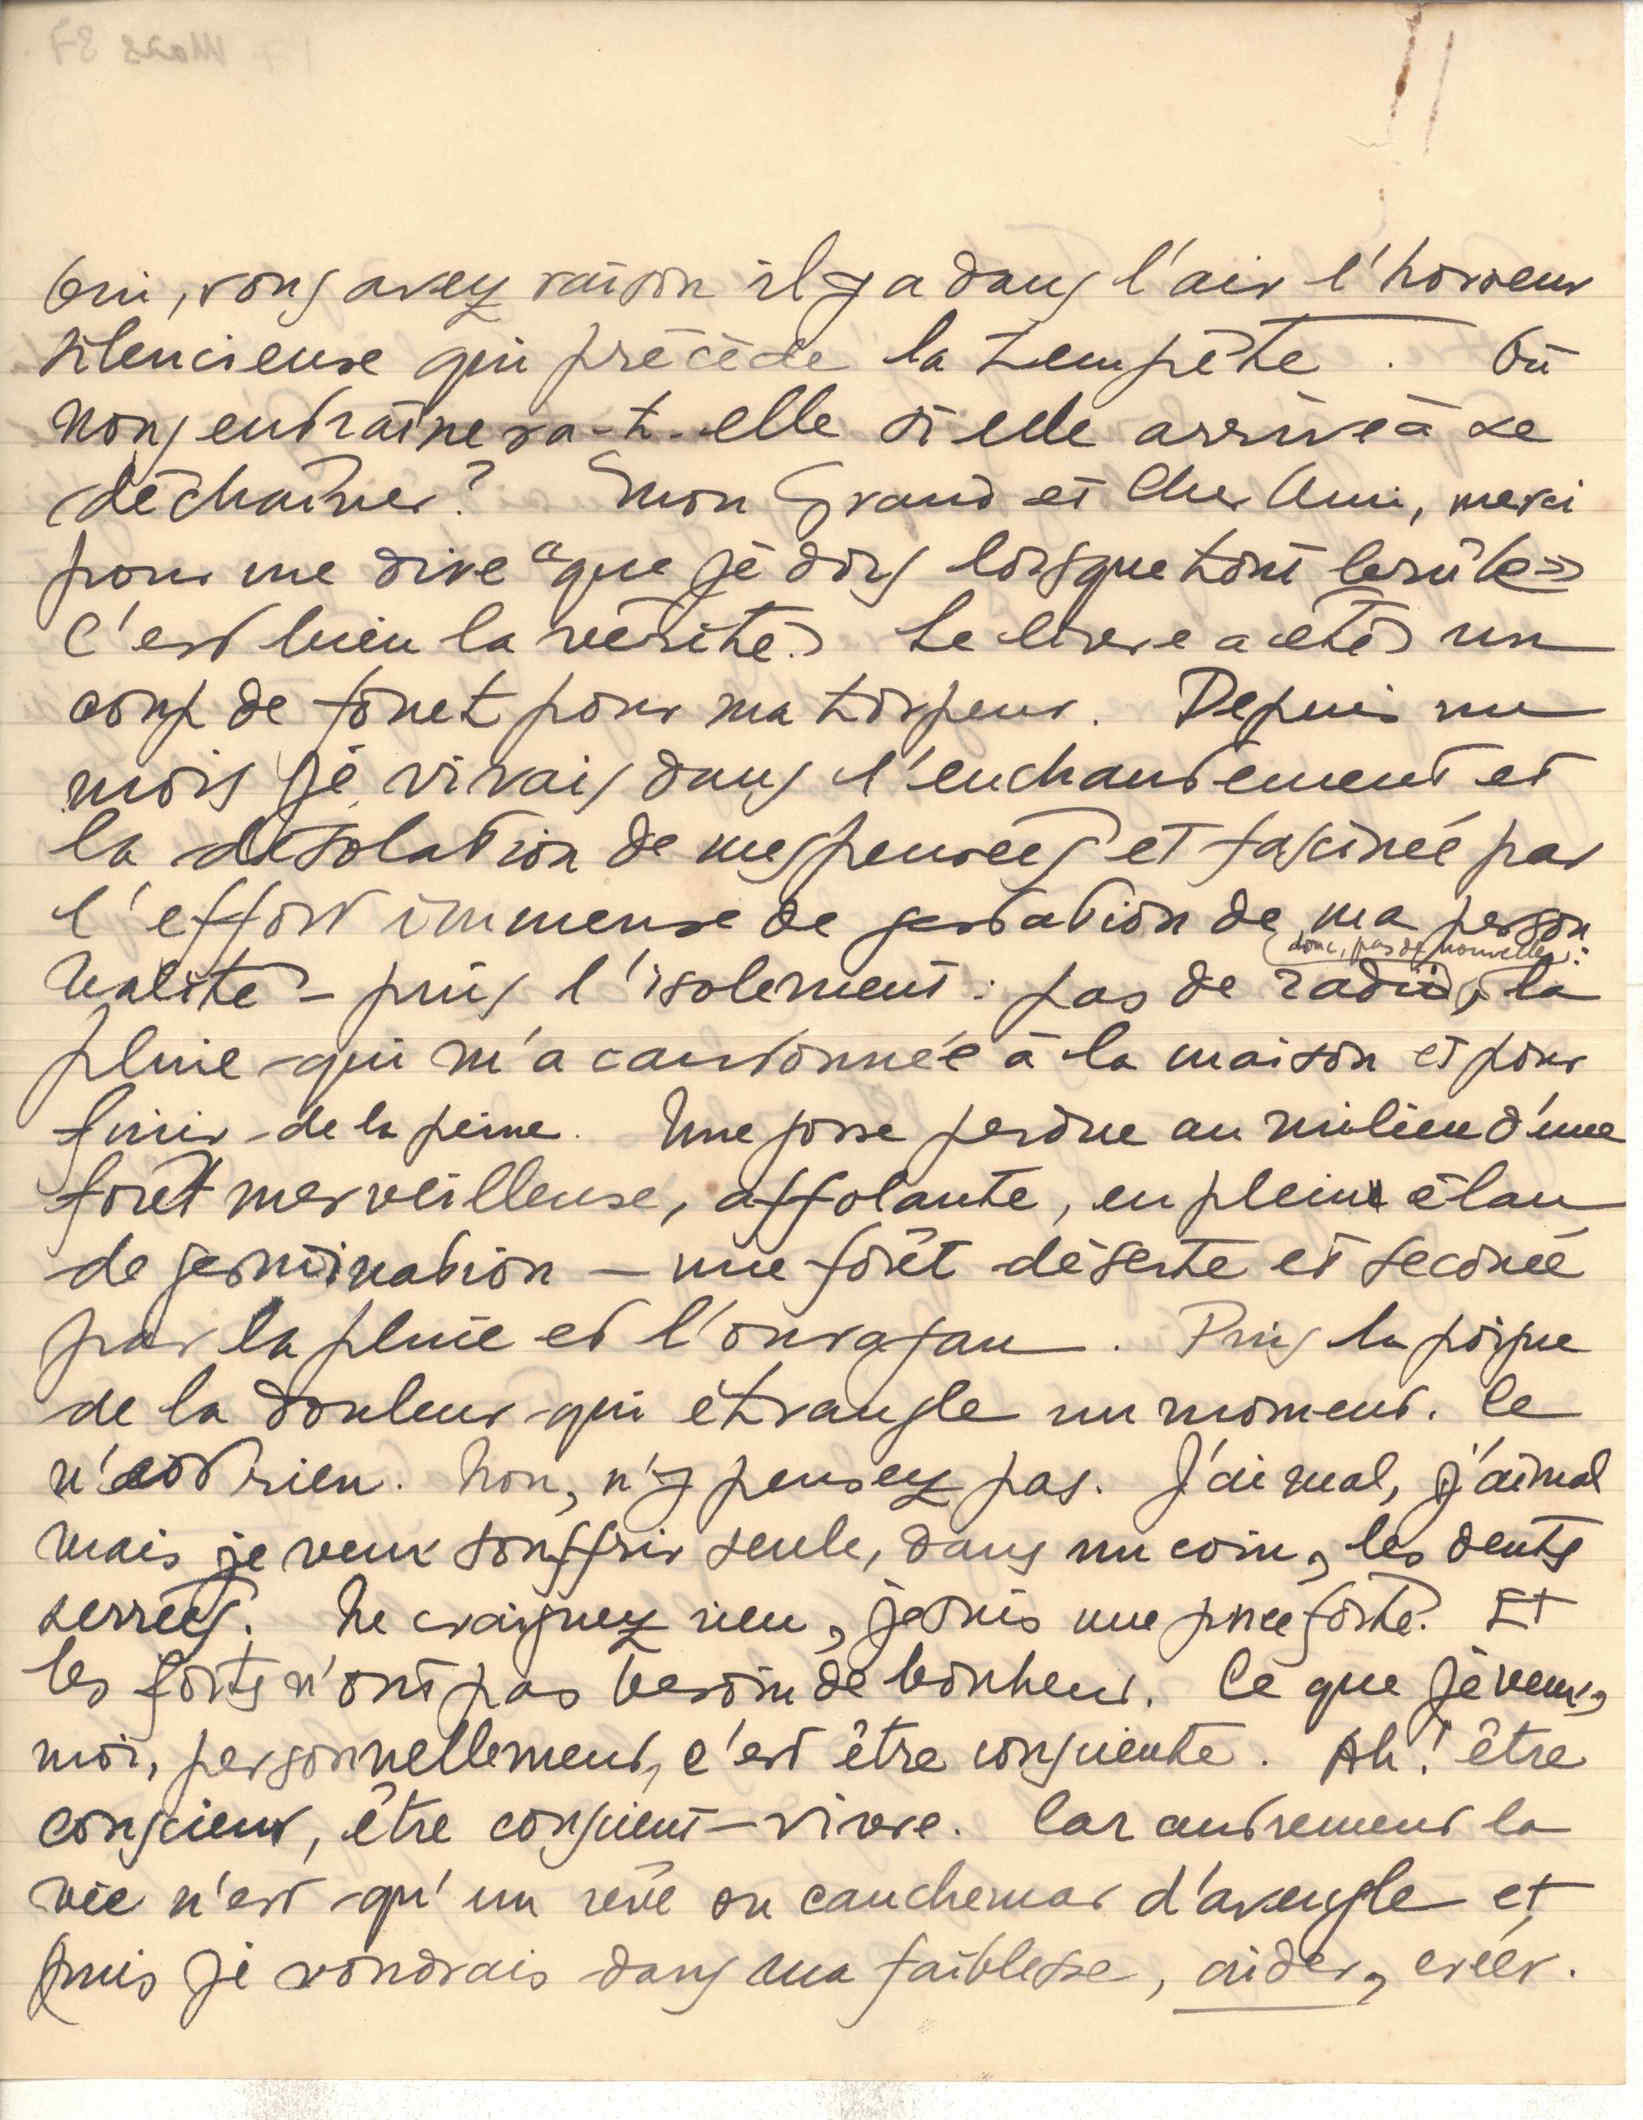 Oui, vous avez raison il y a dans l'air l'horreur
silencieuse qui précède la tempête. Où
nous entraînera-t-elle si elle arrive à se
déchaîner? Mon Grand et Cher Ami, merci
pour me dire "que je dors lorsque tout brûle"
C'est bien la vérité. Le livre a été un
coup de fouet pour ma torpeur. Depuis un
mois je vivais dans l'enchantement et
la désolation de mes pensées et fascinée par
l'effort immense de gestation de ma person
nalité - puis l'isolement : pas de radio, la
(donc, pas de nouvelles) :
pluie qui m'a cantonnée à la maison et pour
finir - de la peine. Une gosse perdue au milieu d'une
forêt merveilleuse, affolante, en plein élan
de germination — une forêt déserte et secouée
par la pluie et l'ouragan. Puis la poigne
de la douleur qui étrangle un moment. Ce
n'est rien. Non, n'y pensez pas. J'ai mal, j'ai mal
mais je veux souffrir seule, dans un coin, les dents
serrées. Ne craignez rien, je suis une force. Et
les forts n'ont pas besoin de bonheur. Ce que je veux,
moi, personnellement, c'est être consciente. Ah! être
conscient, être conscient - vivre. Car autrement la
vie n'est qu'un rêve ou cauchemar d'aveugle et
puis je voudrais dans ma faiblesse, aider, créer.